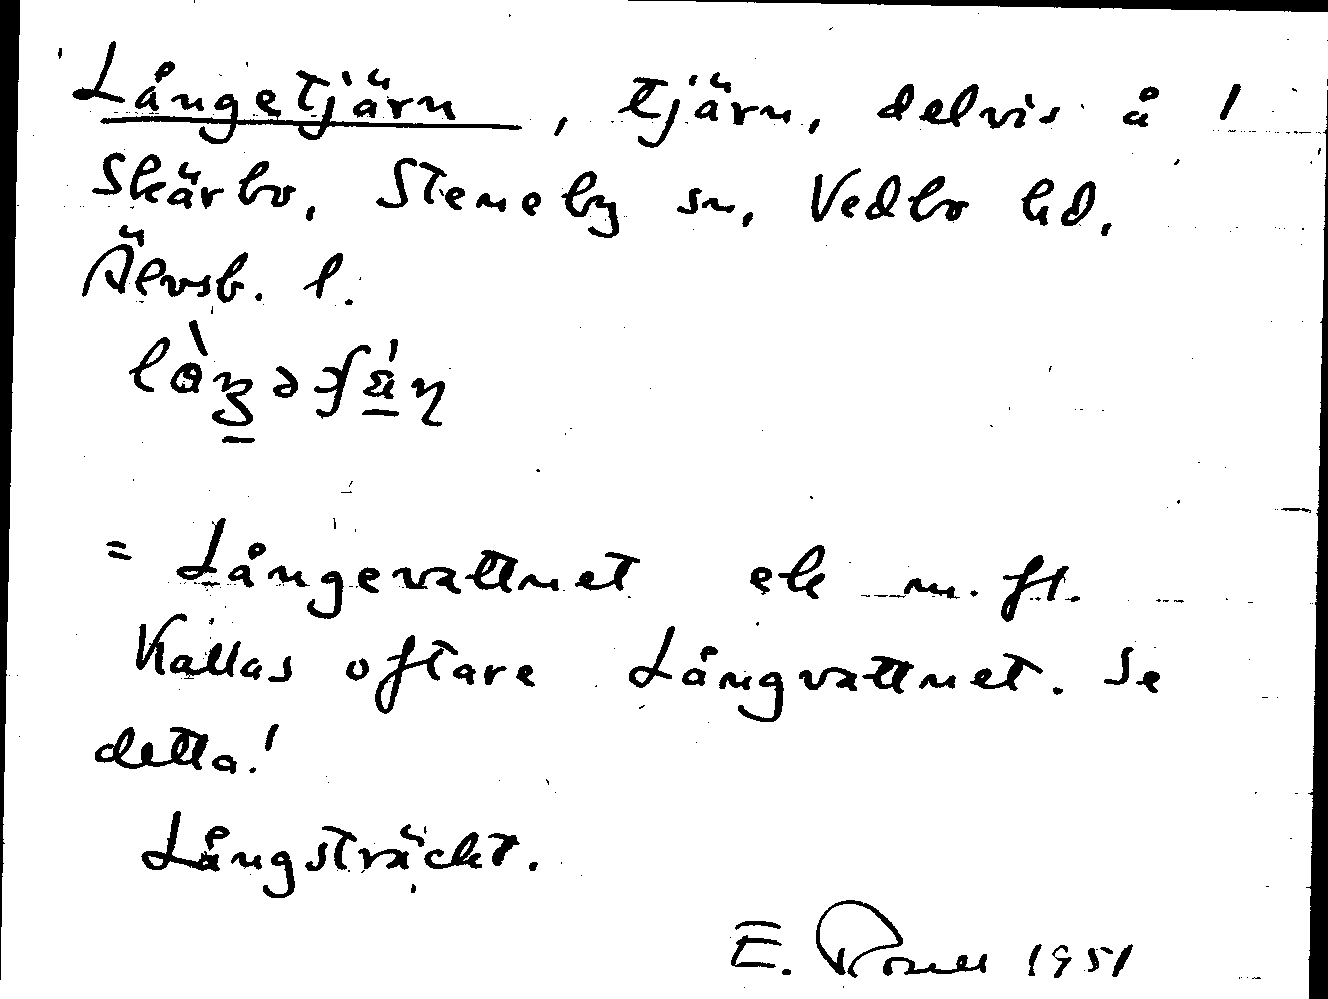 Långetjärn, tjärn, delvis å 1
Skärbo, Steneby sn, Vedbo hd,
Älvsb. l.
= Långevattnet ek m. fl.
Kallas oftare Långvattnet. Se
detta!
Långsträckt.
E. 1951